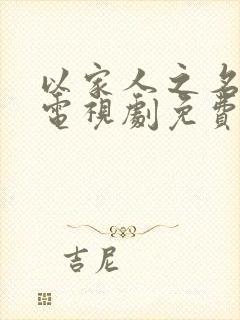 以家人之名
電視劇免費
吉尼